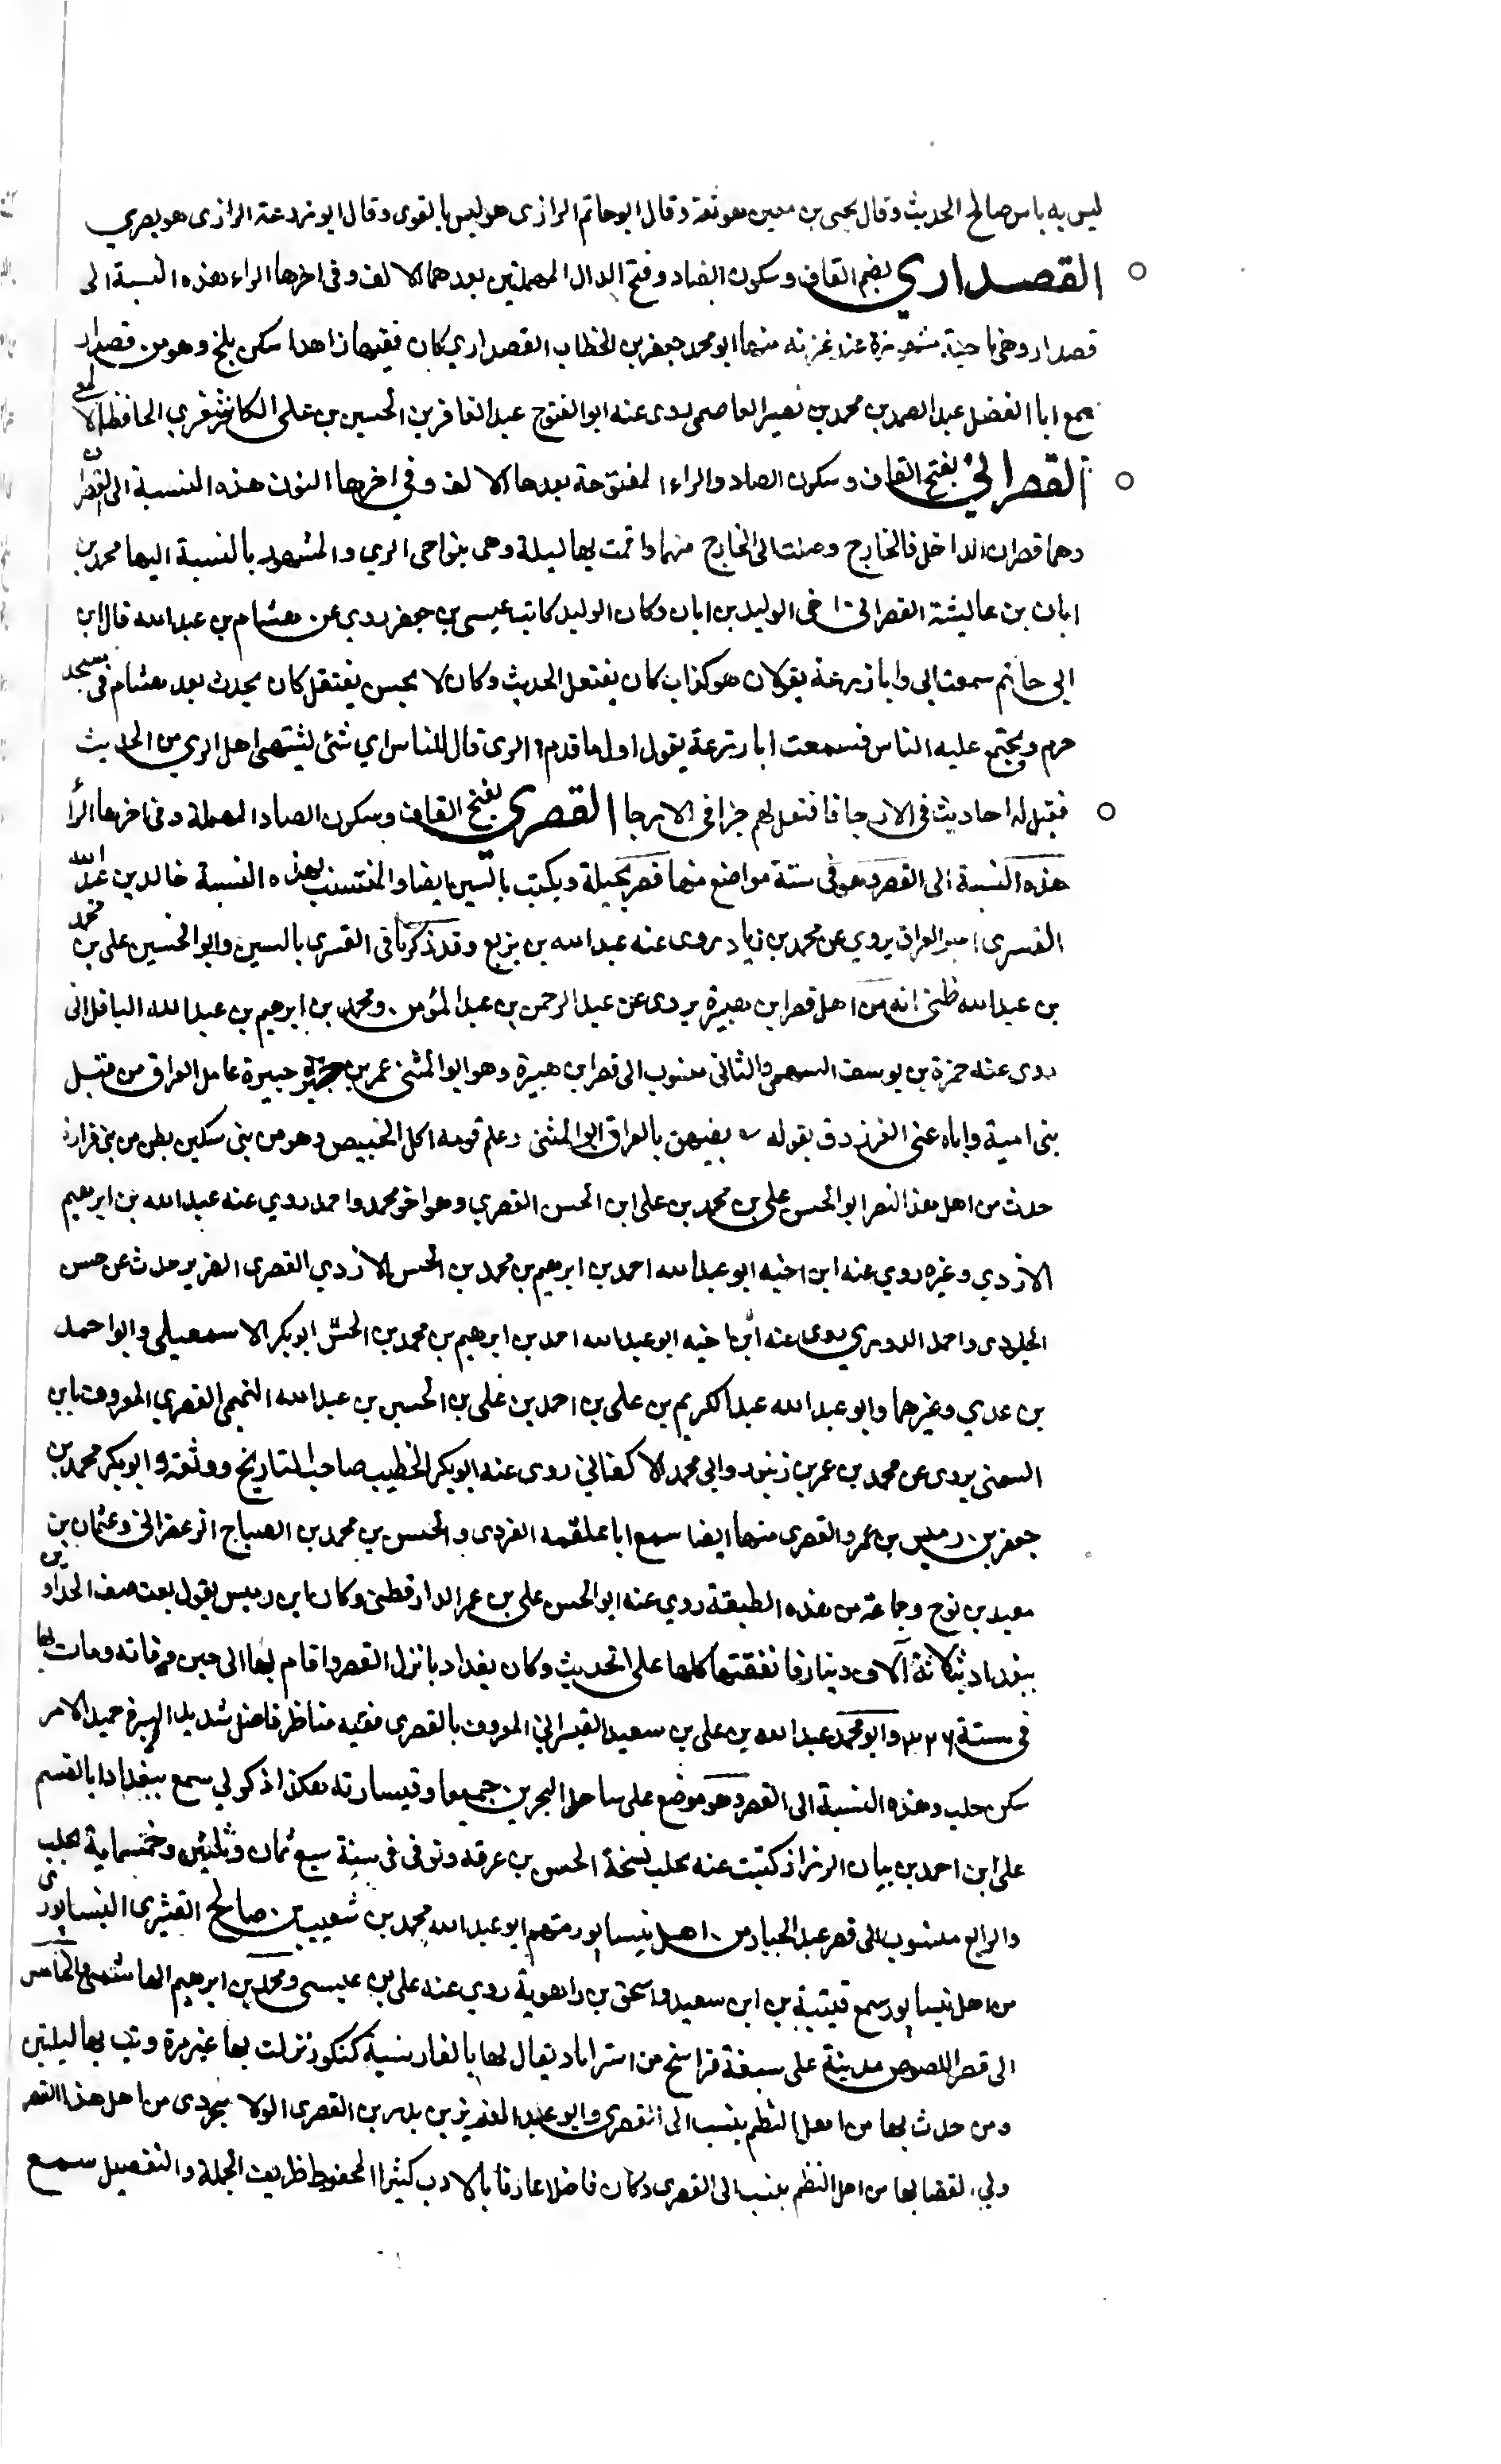 ليس به باس صالح الحديث وقال يحيى بن معين هو ثقة وقال ابو حاتم الرازى هو ليس بالقوى وقال ابو زرعة الرازى هو بصري
القصداري بضم القاف وسكون الصاد وفتح الدال المهملتين بعدهما الالف وفى اخرها الراء هذه النسبة الى
قصدار وهى ناحية مشهورة عند غزنه منها ابو محمد جعفر بن الخطاب القصداري كان فقيها زاهدا سكن بلخ وهو من قصدار
سمع ابا الفضل عبد الصمد بن محمد بن نصير العاصمى روى عنه ابو الفتوح عبد الغافر بن الحسين بن على الكاشغري الحافظ الالمعى
القصرانى بفتح القاف وسكون الصاد والراء المفتوحة بعدها الالف وفي اخرها النون هذه النسبة الى القصران
وهما قصران الداخل فالخارج وصلت الى الخارج منهما واقمت بها ليلة وهى بنواحى الري والمشهور بالنسبة اليها محمد بن
ابان بن عايشة القصرانى اخى الوليد بن ابان وكان الوليد كاتب عيسى بن جعفر روي عن هشام بن عبد الله قال ابن
ابى حاتم سمعت ابي وابا زرعة يقولان هو كذاب كان يفتعل الحديث وكان لا يحسن يفتعل كان يحدث بعد هشام فى مسجد
حرم ويجتمع عليه الناس فسمعت ابا زرعة يقول اول ما قدم الرى قال للناس اي شئى يشتهى اهل الري من الحديث
فقيل له احاديث فى الارجا فافتعل لهم جزا فى الارجا القصري بفتح القاف وسكون الصاد المهملة وفى اخرها الرا
هذه النسبة الى القصر وهو فى ستة مواضع منها قصر بجيلة ويكتب بالسين ايضا والمنتسب بهذه النسبة خالد بن عبد الله
القسرى امير العراق يروي عن محمد بن زياد روى عنه عبد الله بن بزيع وقد ذكرنا فى القسرى بالسين وابو الحسين على بن محمد
بن عبد الله ظنى انه من اهل قصر ابن هبيرة يروى عن عبد الرحمن بن عبد المؤمن ومحمد بن ابرهيم بن عبد الله الباقلانى
روى عنه حمزة بن يوسف السهمى والثانى منسوب الى قصر ابن هبيرة وهو ابو المثنى عمر بن هبيرة عامل العراق من قبل
بنى امية واياه عنى الفرزدق بقوله تفيهن بالعراق ابو المثنى وعلم قومه اكل الخبيص وهو من بنى سكين بطن من بنى فزارة
حدث من اهل هذا القصر ابو الحسن على بن محمد بن على ابن الحسن القصري وهو اخو محمد واحمد روي عنه عبد الله بن ابرهيم
الازدي وغيره روي عنه ابن اخيه ابو عبد الله احمد بن ابرهيم بن محمد بن الحسن الازدي القصرى الضرير حدث عن حسن
الجلودى واحمد الدورري روى عنه ابن اخيه ابو عبد الله احمد بن ابرهيم بن محمد بن الحسن ابو بكر الاسمعيلى وابو احمد
بن عدي وغيرهما وابو عبد الله عبد الكريم بن على بن احمد بن على بن الحسين بن عبد الله التميمى القصري المعروف بابن
السينى يروى عن محمد بن عمر بن زنبور وابى محمد الاكفاني روى عنه ابو بكر الخطيب صاحب التاريخ ووثقه وابو بكر محمد بن
جعفر بن رميس بن عمرو القصرى منها ايضا سمع ابا علقمه الفروى والحسن بن محمد بن الصباح الزعفرانى وعثمان بن
معبد بن نوح وجماعة من هذه الطبقة روي عنه ابو الحسن على بن عمر الدارقطنى وكان ابن رميس يقول بعت صف الحدادين
ببغداد بثلاثة آلاف دينار فانفقتها كلها على الحديث وكان بغداد يا نزل القصر واقام بها الى حين وفاته ومات بها
فى سنة ٣٢٦ وابو محمد عبد الله بن على بن سعيد القيسراني المعروف بالقصرى فقيه مناظر فاضل شديد السيرة حميد الامر
سكن حلب وهذه النسبة الى القصر وهو موضع على ساحل البحر بن جميعا وقيسارته هكذا ذكر لي سمع ببغداد ابا القسم
على ابن احمد بن بيان الرزاز كتبت عنه بحلب نسخة الحسن بن عرفه وتوفى فى سنة سبع ثمان وثلثين وخمسماية بحلب
والرابع منسوب الى قصر عبد الجبار من اهل نيسابور منهم ابو عبد الله محمد بن شعيب بن صالح القشيرى النيسابورى
من اهل نيسابور سمع قتيبة بن ابن سعيد واسحق بن راهوية روي عنه على بن عيسى ومحمد بن ابرهيم الهاشمى والخامس
الى قصر اللصوص مدينة على سبعة فراسخ من استراباد يقال لها بالفارسية كنكور نزلت بها غير مرة وبت بها ليلتين
ومن حدث بها من اهل النظم ينسب الى القصرى وابو عبد العزيز بن بدر بن القصرى الولاشجردى من اهل هذا القصر
ولي القضا بها من اهل النظم ينسب الى القصرى وكان فاضلا عارفا بالادب كثير المحفوظ ظريف الجملة والتفصيل سمع